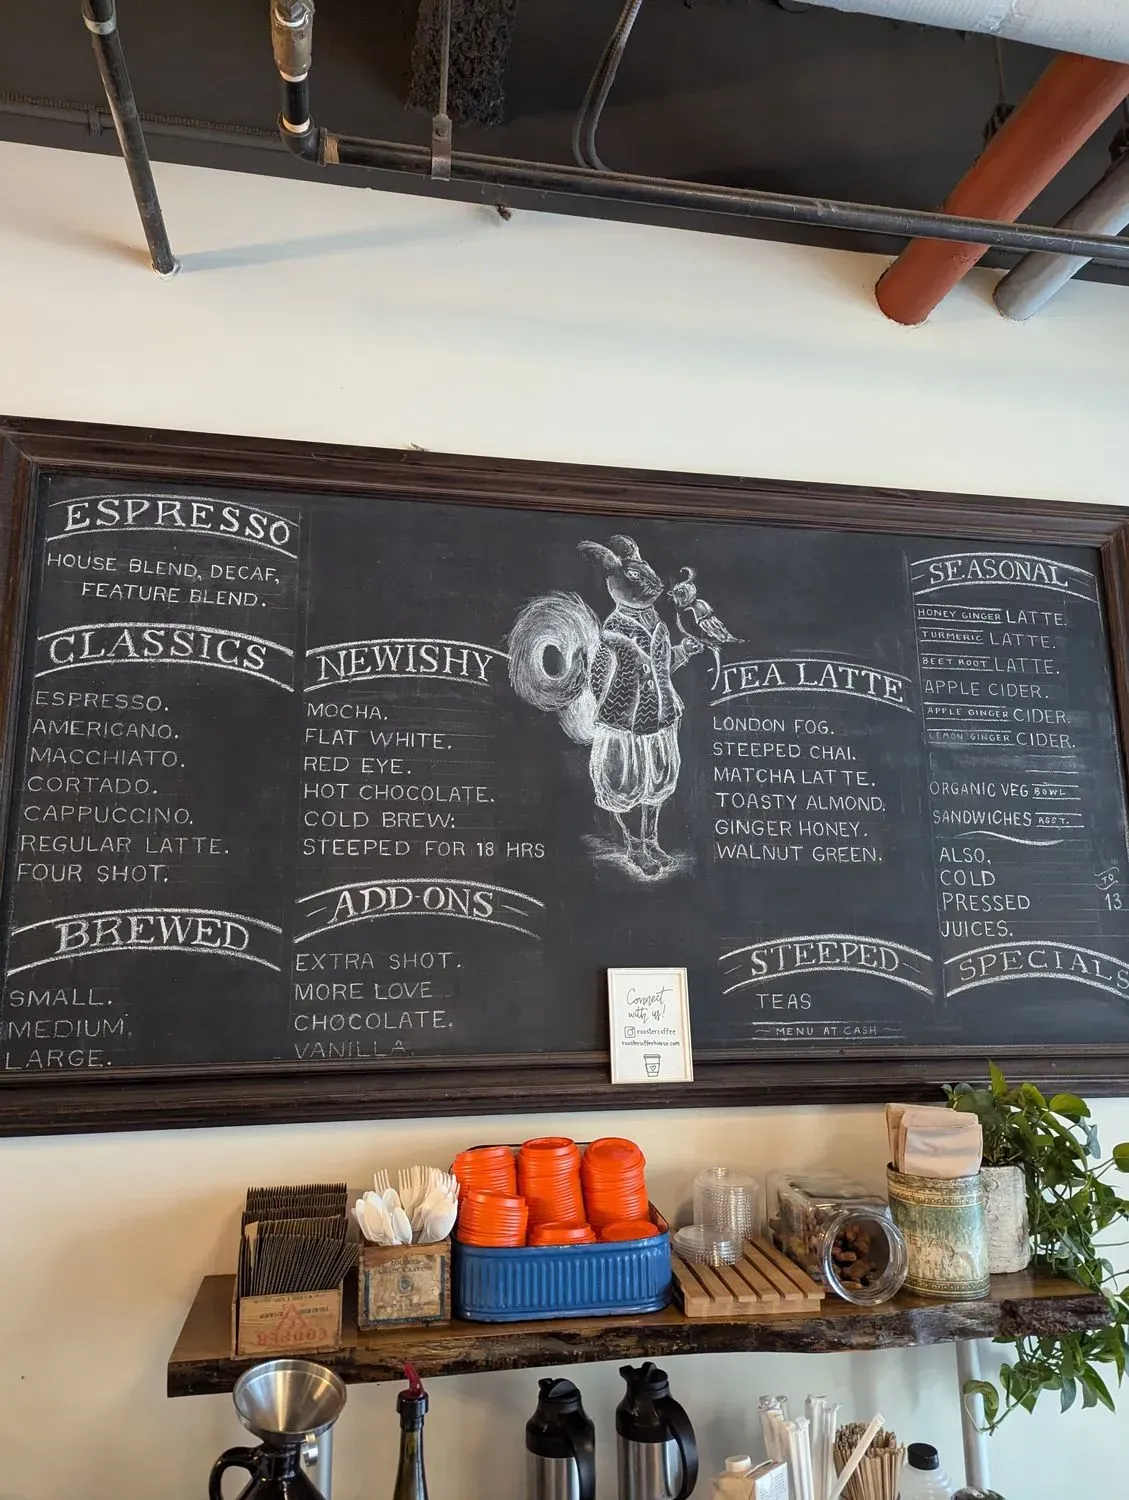 ESPRESSO
HOUSE BLEND, DECAF,
FEATURE BLEND.
CLASSICS
ESPRESSO.
AMERICANO.
MACCHIATO.
CORTADO.
CAPPUCCINO.
REGULAR LATTE.
FOUR SHOT.
BREWED
SMALL.
MEDIUM.
LARGE.
NEWISHY
MOCHA.
FLAT WHITE.
RED EYE.
HOT CHOCOLATE.
COLD BREW:
STEEPED FOR 18 HRS
ADD-ONS
EXTRA SHOT.
MORE LOVE
CHOCOLATE.
VANILLA.
Connect
with us!
roostercoffee
roostercoffeehouse.com
TEA LATTE
LONDON FOG.
STEEPED CHAI.
MATCHA LATTE.
TOASTY ALMOND.
GINGER HONEY.
WALNUT GREEN.
STEEPED
TEAS
MENU AT CASH
SEASONAL
HONEY GINGER LATTE.
TURMERIC LATTE.
BEET ROOT LATTE.
APPLE CIDER.
APPLE GINGER CIDER.
LEMON GINGER CIDER.
ORGANIC VEG BOWL
SANDWICHES ASST.
ALSO,
COLD
PRESSED
JUICES.
TO
13
SPECIALS
COOPER